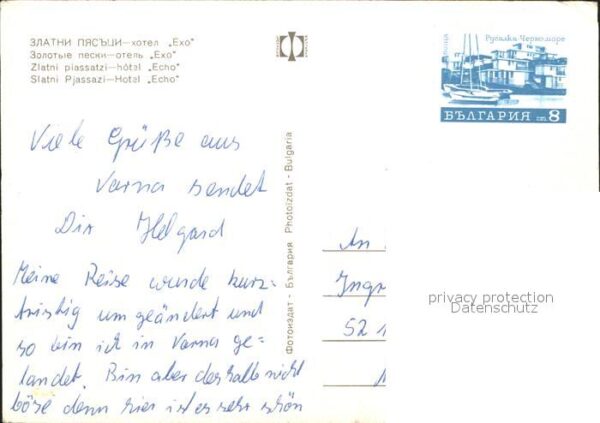 ЗЛАТНИ ПЯСЪЦИ—хотел „Ехо"
Золотые пески—отель „Ехо"
Zlatni piassatzi—hôtel „Echo"
Slatni Pjassazi—Hotel „Echo"
Русалка Черноморие
ПОЩА
БЪЛГАРИЯ ст. 8
Viele Grüße aus
Varna sendet
Dir Helgard
Meine Reise wurde kurz-
fristig um geändert und
so bin ich in Varna ge-
landet. Bin aber deshalb nicht
böse denn hier ist es sehr schön
Фотоиздат - България Photoizdat - Bulgaria
An
Ingr
52
privacy protection
Datenschutz